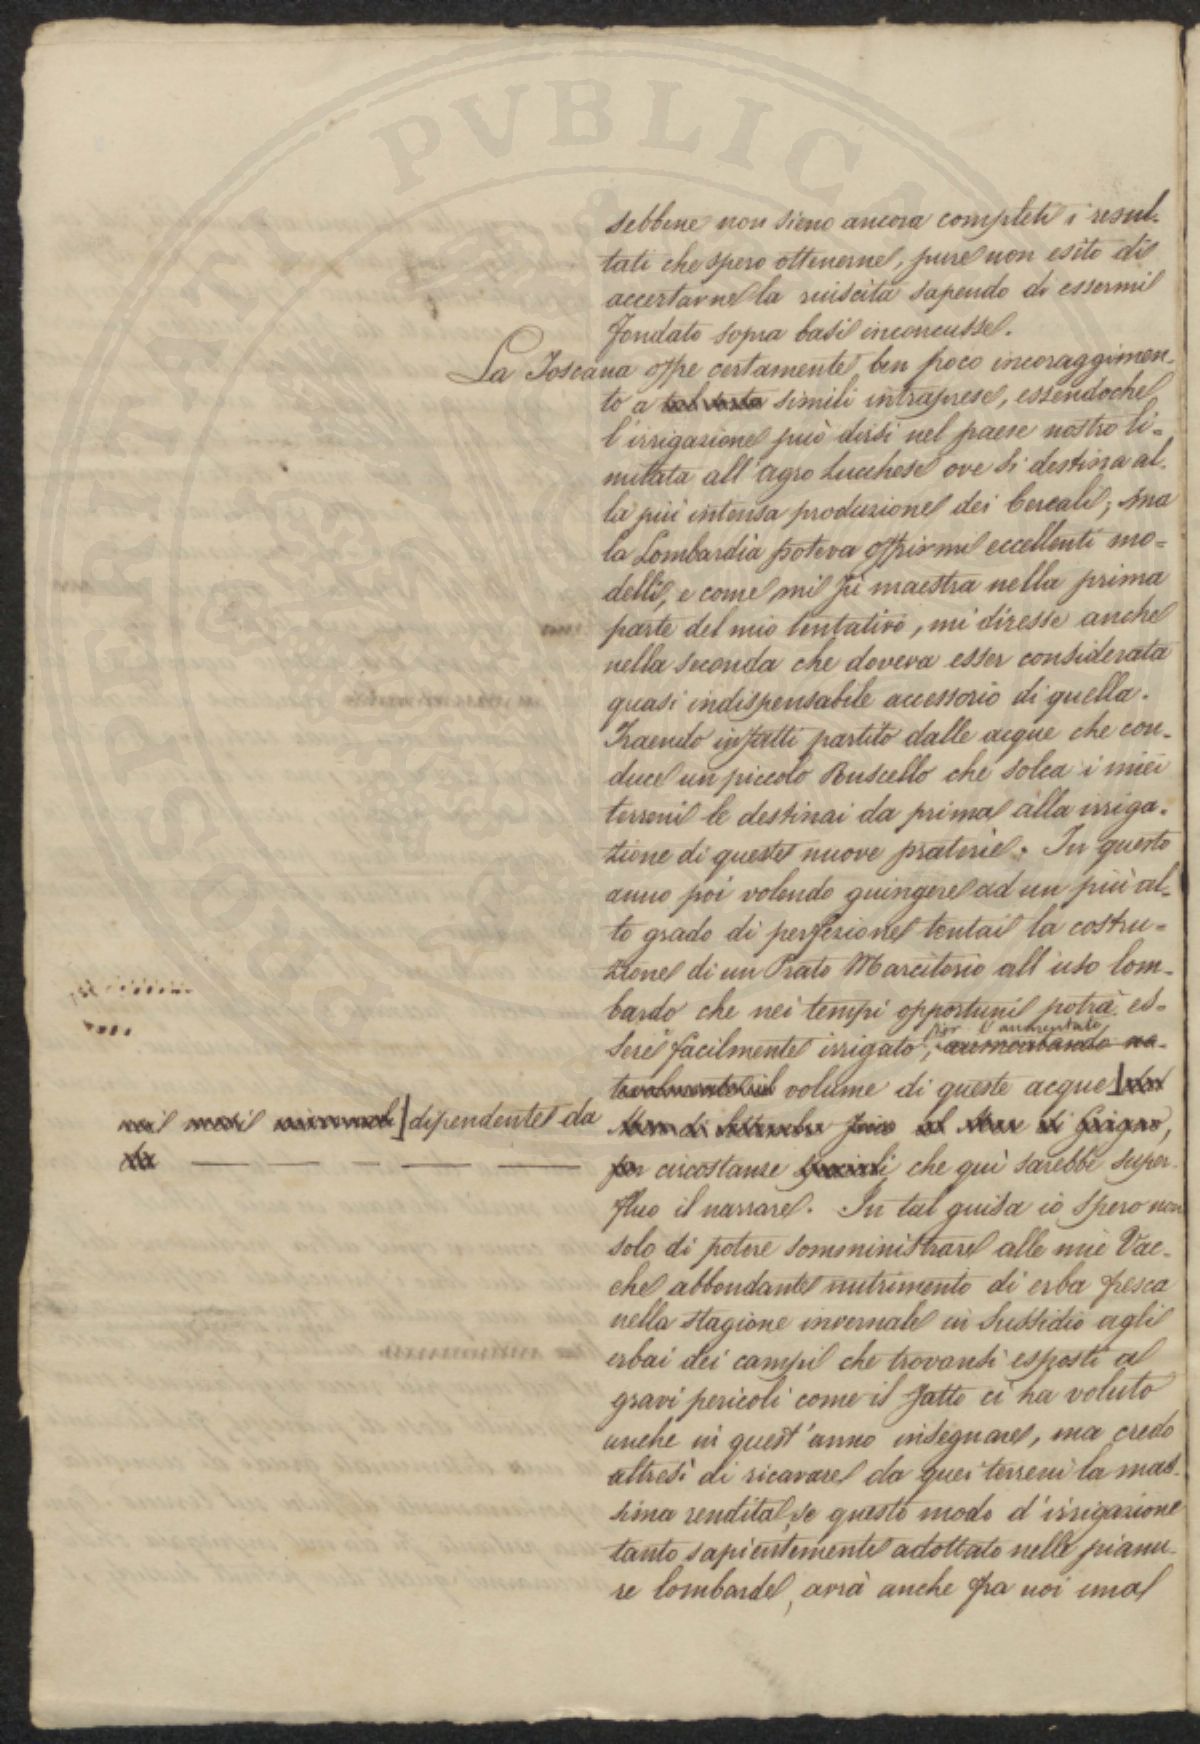 sebbene non sieno ancora completi i resul-
tati che spero ottenerne, pure non esito di
accertarne la riuscita sapendo di essermi
fondato sopra basi inconcusse.
La Toscana offre certamente ben poco incoraggimen-
to a tal sorta simili intraprese, essendochè
l'irrigazione può dirsi nel paese nostro li-
mitata all'agro Lucchese ove si destina al-
la più intensa produzione dei Cereali; ma
la Lombardia poteva offrirmi eccellenti mo-
delli, e come mi fu maestra nella prima
parte del mio tentativo, mi diresse anche
nella seconda che doveva esser considerata
quasi indispensabile accessorio di quella.
Traendo infatti partito dalle acque che con-
duce un piccolo Ruscello che solca i miei
terreni le destinai da prima alla irriga-
zione di queste nuove praterie. In questo
anno poi volendo guingere ad un più al-
to grado di perfezione tentai la costru-
zione di un Prato Marcitorio all'uso lom-
bardo che nei tempi opportuni potrà es-
per l'aumentato
sere facilmente irrigato, aumentando na-
turalmente il volume di queste acque] dal
nei mesi invernali] dipendente da
Mese di Settembre fino al Mese di Giugno,
per circostanze speciali, che quì sarebbe super-
fluo il narrare. In tal guisa io spero non
solo di potere somministrare alle mie Vac-
che abbondante nutrimento di erba fresca
nella stagione invernale in sussidio agli
erbai dei campi che trovansi esposti a
gravi pericoli come il fatto ci ha voluto
anche in quest'anno insegnare, ma credo
altresì di ricavare da quei terreni la mas-
sima rendita, se questo modo d'irrigazione
tanto sapientemente adottato nelle pianu-
re lombarde, avrà anche fra noi una
PVBLICA